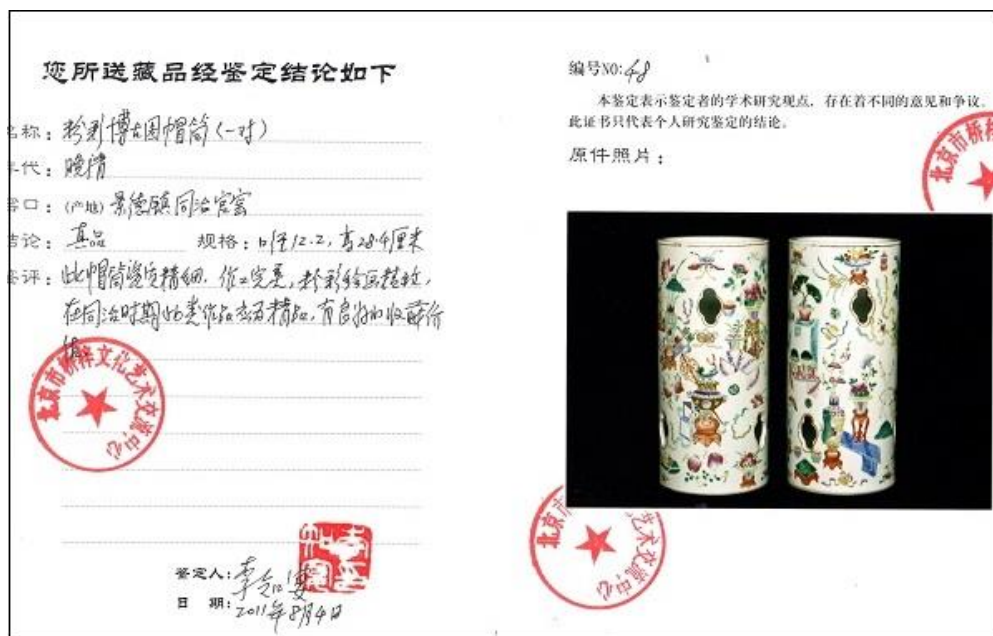 您所送藏品经鉴定结论如下
名称：粉彩博古图帽筒（一对）
年代：晚清
窑口：(产地)景德镇同治官窑
结论：真品 规格：口径12.2，高28.4厘米
鉴评：此帽筒瓷质精细，作工完美，粉彩绘画精致，
在同治时期此类作品亦为精品，有良好的收藏价
值
北京市桥梓文化艺术交流中心
鉴定人：李知宴
日 期：2011年8月4日
编号NO:48
本鉴定表示鉴定者的学术研究观点，存在着不同的意见和争议。
此证书只代表个人研究鉴定的结论。
原件照片：
北京市桥梓
北京市 艺术交流中心